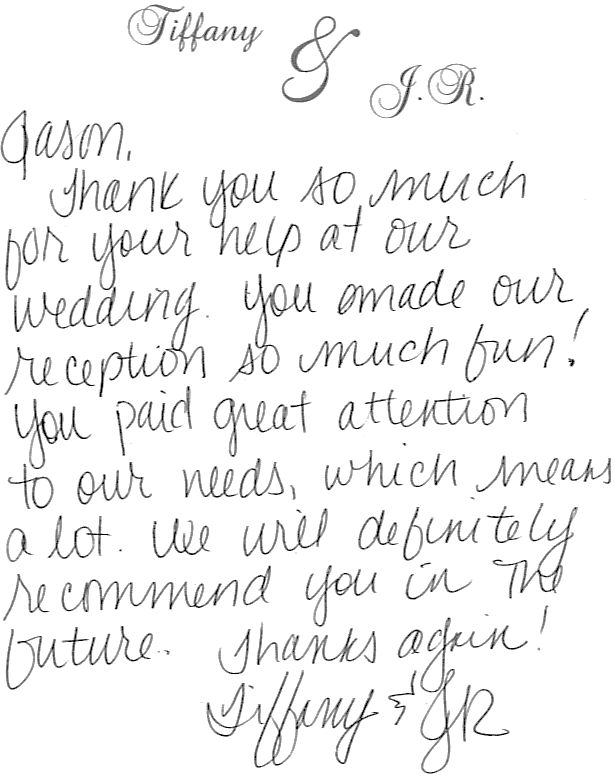 Tiffany & J.R.
Jason,
Thank you so much
for your help at our
wedding. You made our
reception so much fun!
You paid great attention
to our needs, which means
a lot. We will definitely
recommend you in the
future. Thanks again!
Tiffany & JR